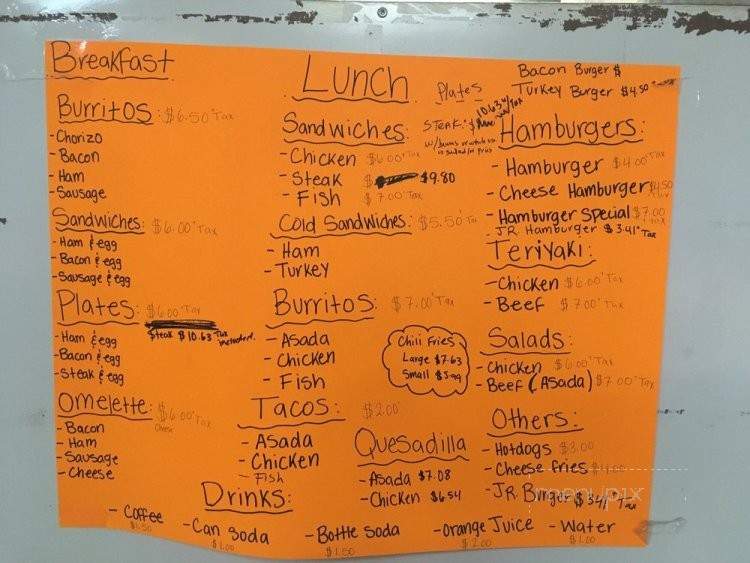 Breakfast
Burritos: $6.50+Tax
- Chorizo
- Bacon
- Ham
- Sausage
Sandwiches: $6.00+Tax
- Ham & egg
- Bacon & egg
- Sausage & egg
Plates: $6.00+Tax
Steak $10.63 Tax included.
- Ham & egg
- Bacon & egg
- Steak & egg
Omelette: $6.00+Tax
- Bacon
Cheese
- Ham
- Sausage
- Cheese
Lunch
Sandwiches:
- Chicken $6.00+Tax
- Steak $9.80
- Fish $7.00+Tax
Cold Sandwiches: $5.50+Tax
- Ham
- Turkey
Burritos: $7.00+Tax
- Asada
- Chicken
- Fish
Tacos: $2.00
- Asada
- Chicken
- Fish
Plates
STEAK: $10.63 w/Tax
Chili Fries
Large $7.63
Small $5.99
Quesadilla
- Asada $7.08
- Chicken $6.54
Bacon Burger $
Turkey Burger $4.50
Hamburgers:
- Hamburger $4.00+Tax
- Cheese Hamburger $4.50
- Hamburger Special $7.00
JR. Hamburger $3.41+Tax
Teriyaki:
- Chicken $6.00+Tax
- Beef $7.00+Tax
Salads:
- Chicken $6.00+Tax
- Beef (Asada) $7.00+Tax
Others:
- Hotdogs $3.00
- Cheese fries
- JR. Burger $3.41+Tax
menupix
Drinks:
- Coffee
$1.50
- Can Soda
$1.00
- Bottle Soda
$1.50
- Orange Juice
$2.00
- Water
$1.00